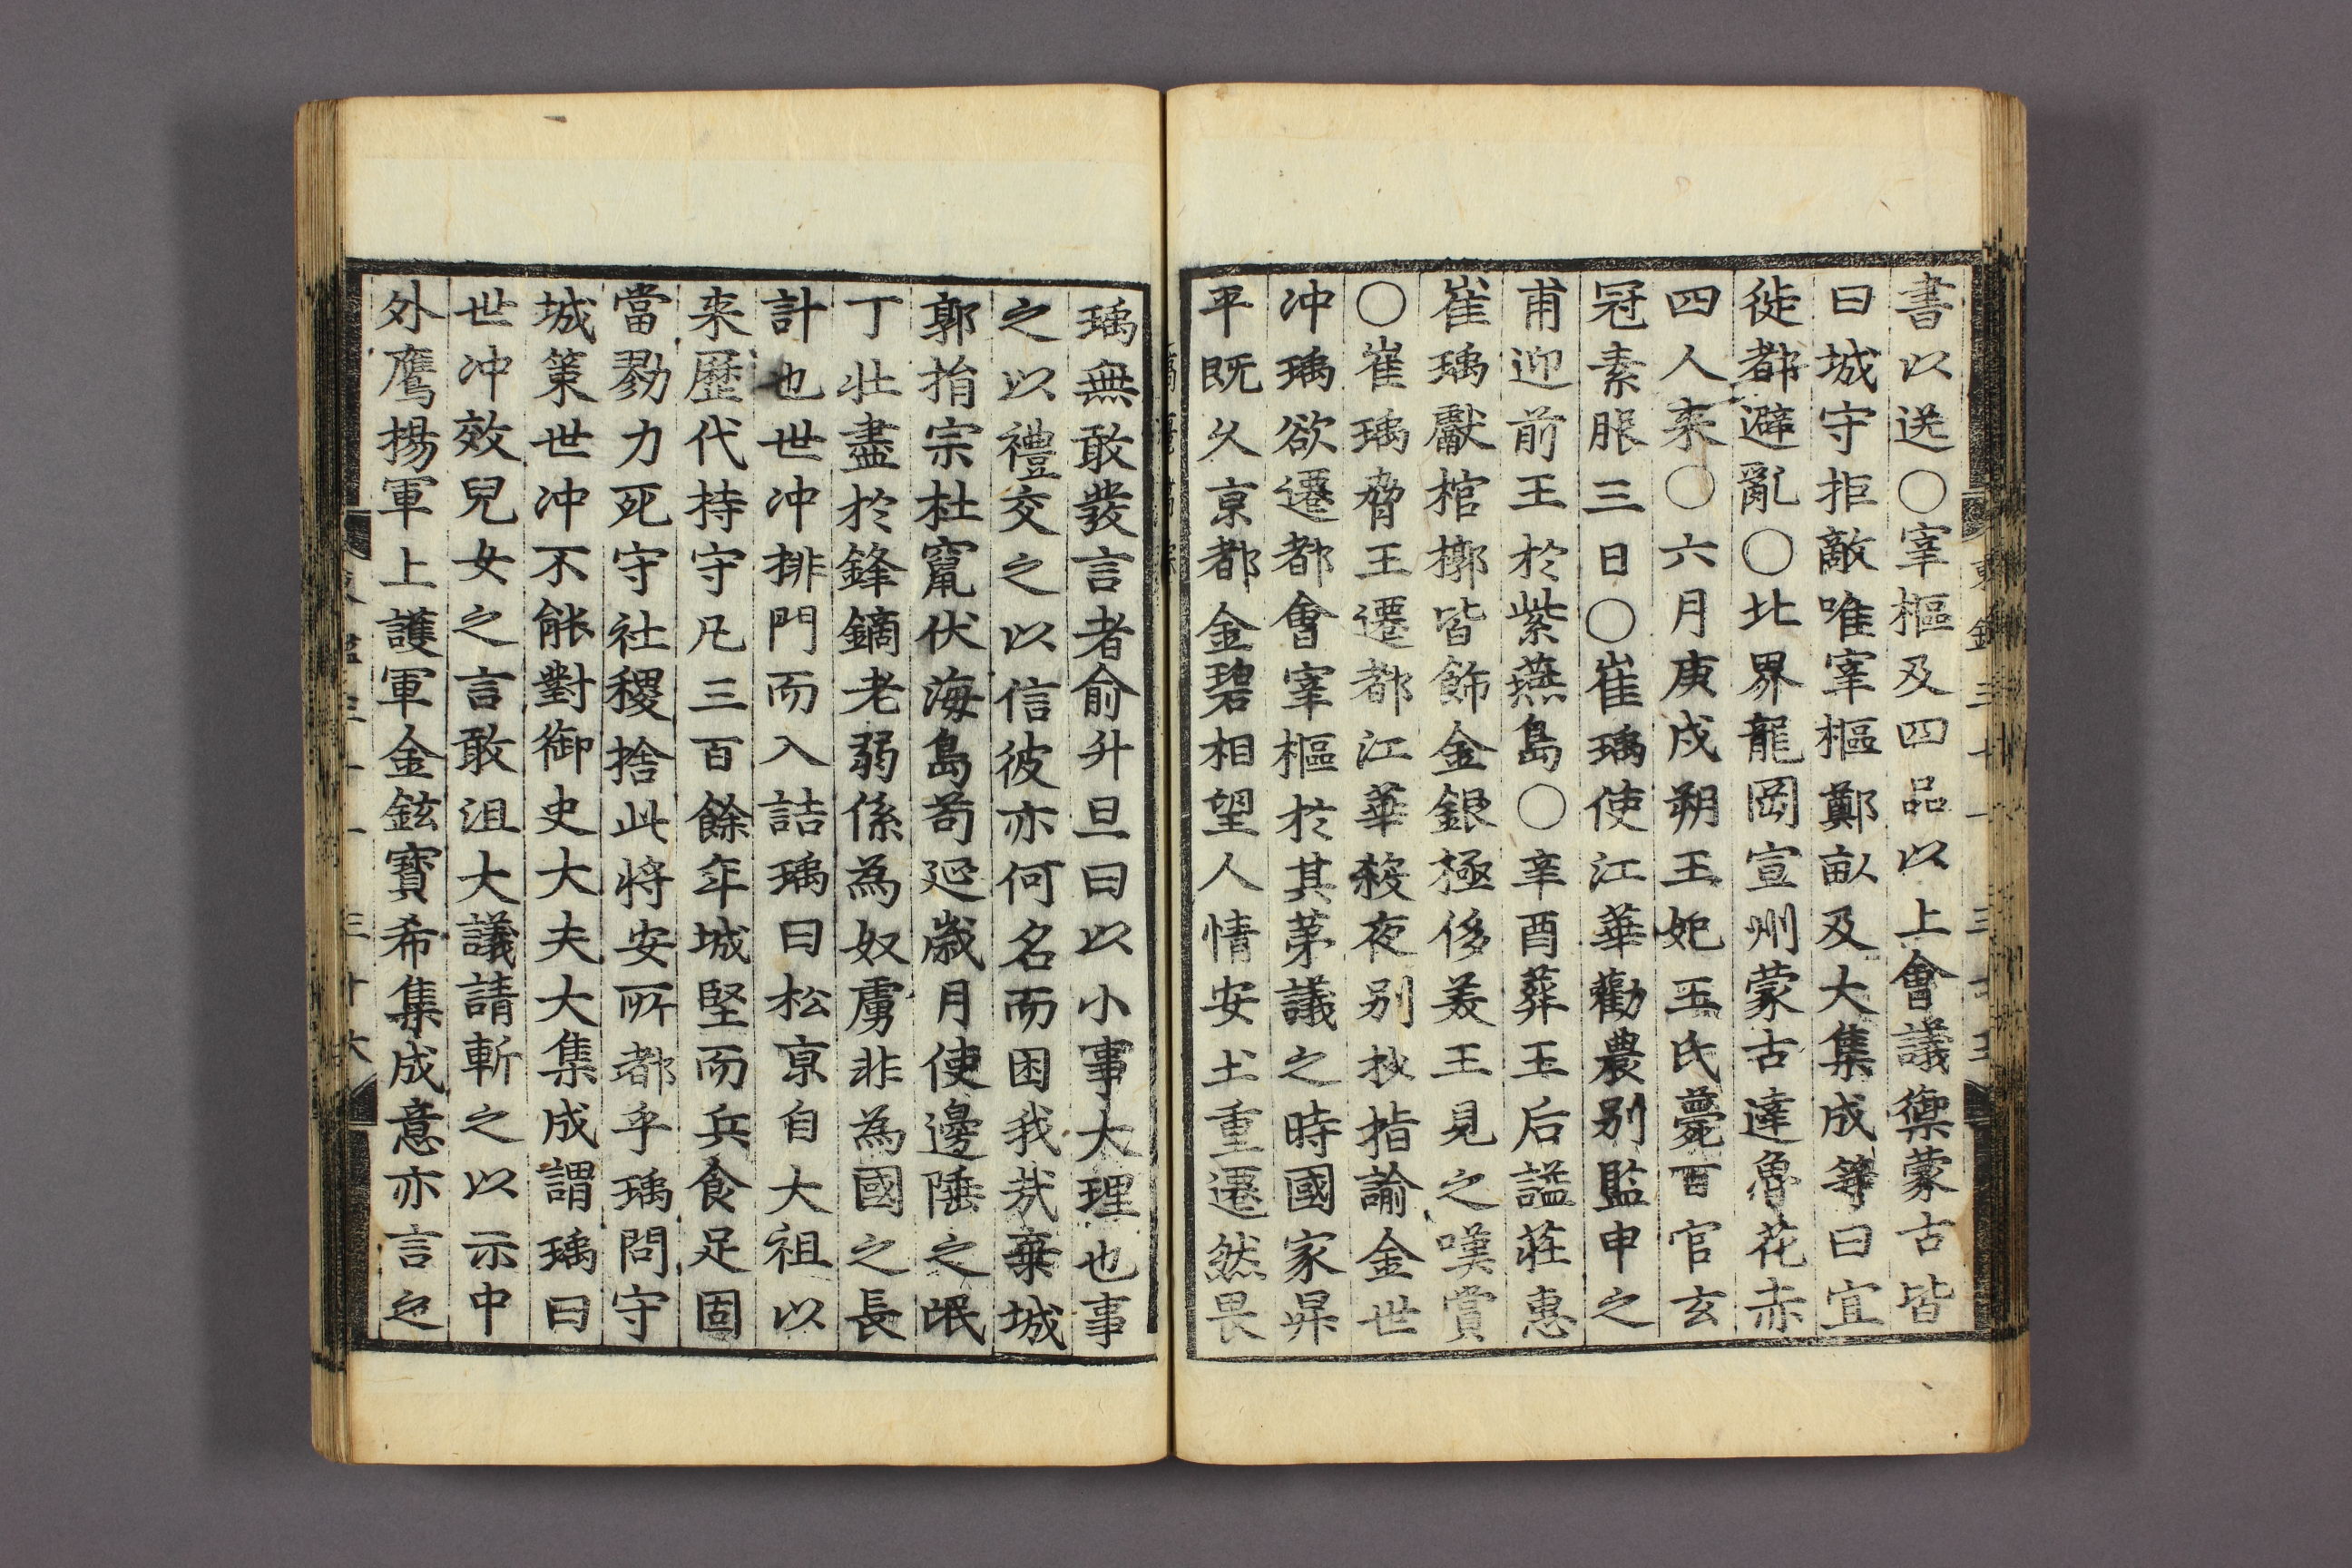 書以送○宰樞及四品以上會議禦蒙古皆
曰城守拒敵唯宰樞鄭畝及大集成等曰宜
徙都避亂○北界龍岡宣州蒙古達魯花赤
四人來○六月庚戌朔王妃王氏薨百官玄
冠素服三日○崔瑀使江華勸農别監申之
甫迎前王於紫燕島○辛酉葬王后謚莊惠
崔瑀獻棺槨皆飾金銀極侈美王見之嘆賞
○崔瑀脅王遷都江華殺夜别抄指諭金世
冲瑀欲遷都會宰樞於其苐議之時國家昇
平既久京都金碧相望人情安土重遷然畏
瑀無敢發言者俞升旦曰以小事大理也事
之以禮交之以信彼亦何名而困我㦲棄城
郭捐宗社竄伏海島苟延歲月使邊陲之氓
丁壯盡於鋒鏑老弱係為奴虜非為國之長
計也世冲排門而入詰瑀曰松京自大祖以
来歷代持守凡三百餘年城堅而兵食足固
當勠力死守社稷捨此將安所都乎瑀問守
城策世冲不能對御史大夫大集成謂瑀曰
世冲效兒女之言敢沮大議請斬之以示中
外鷹揚軍上護軍金鉉寶希集成意亦言之